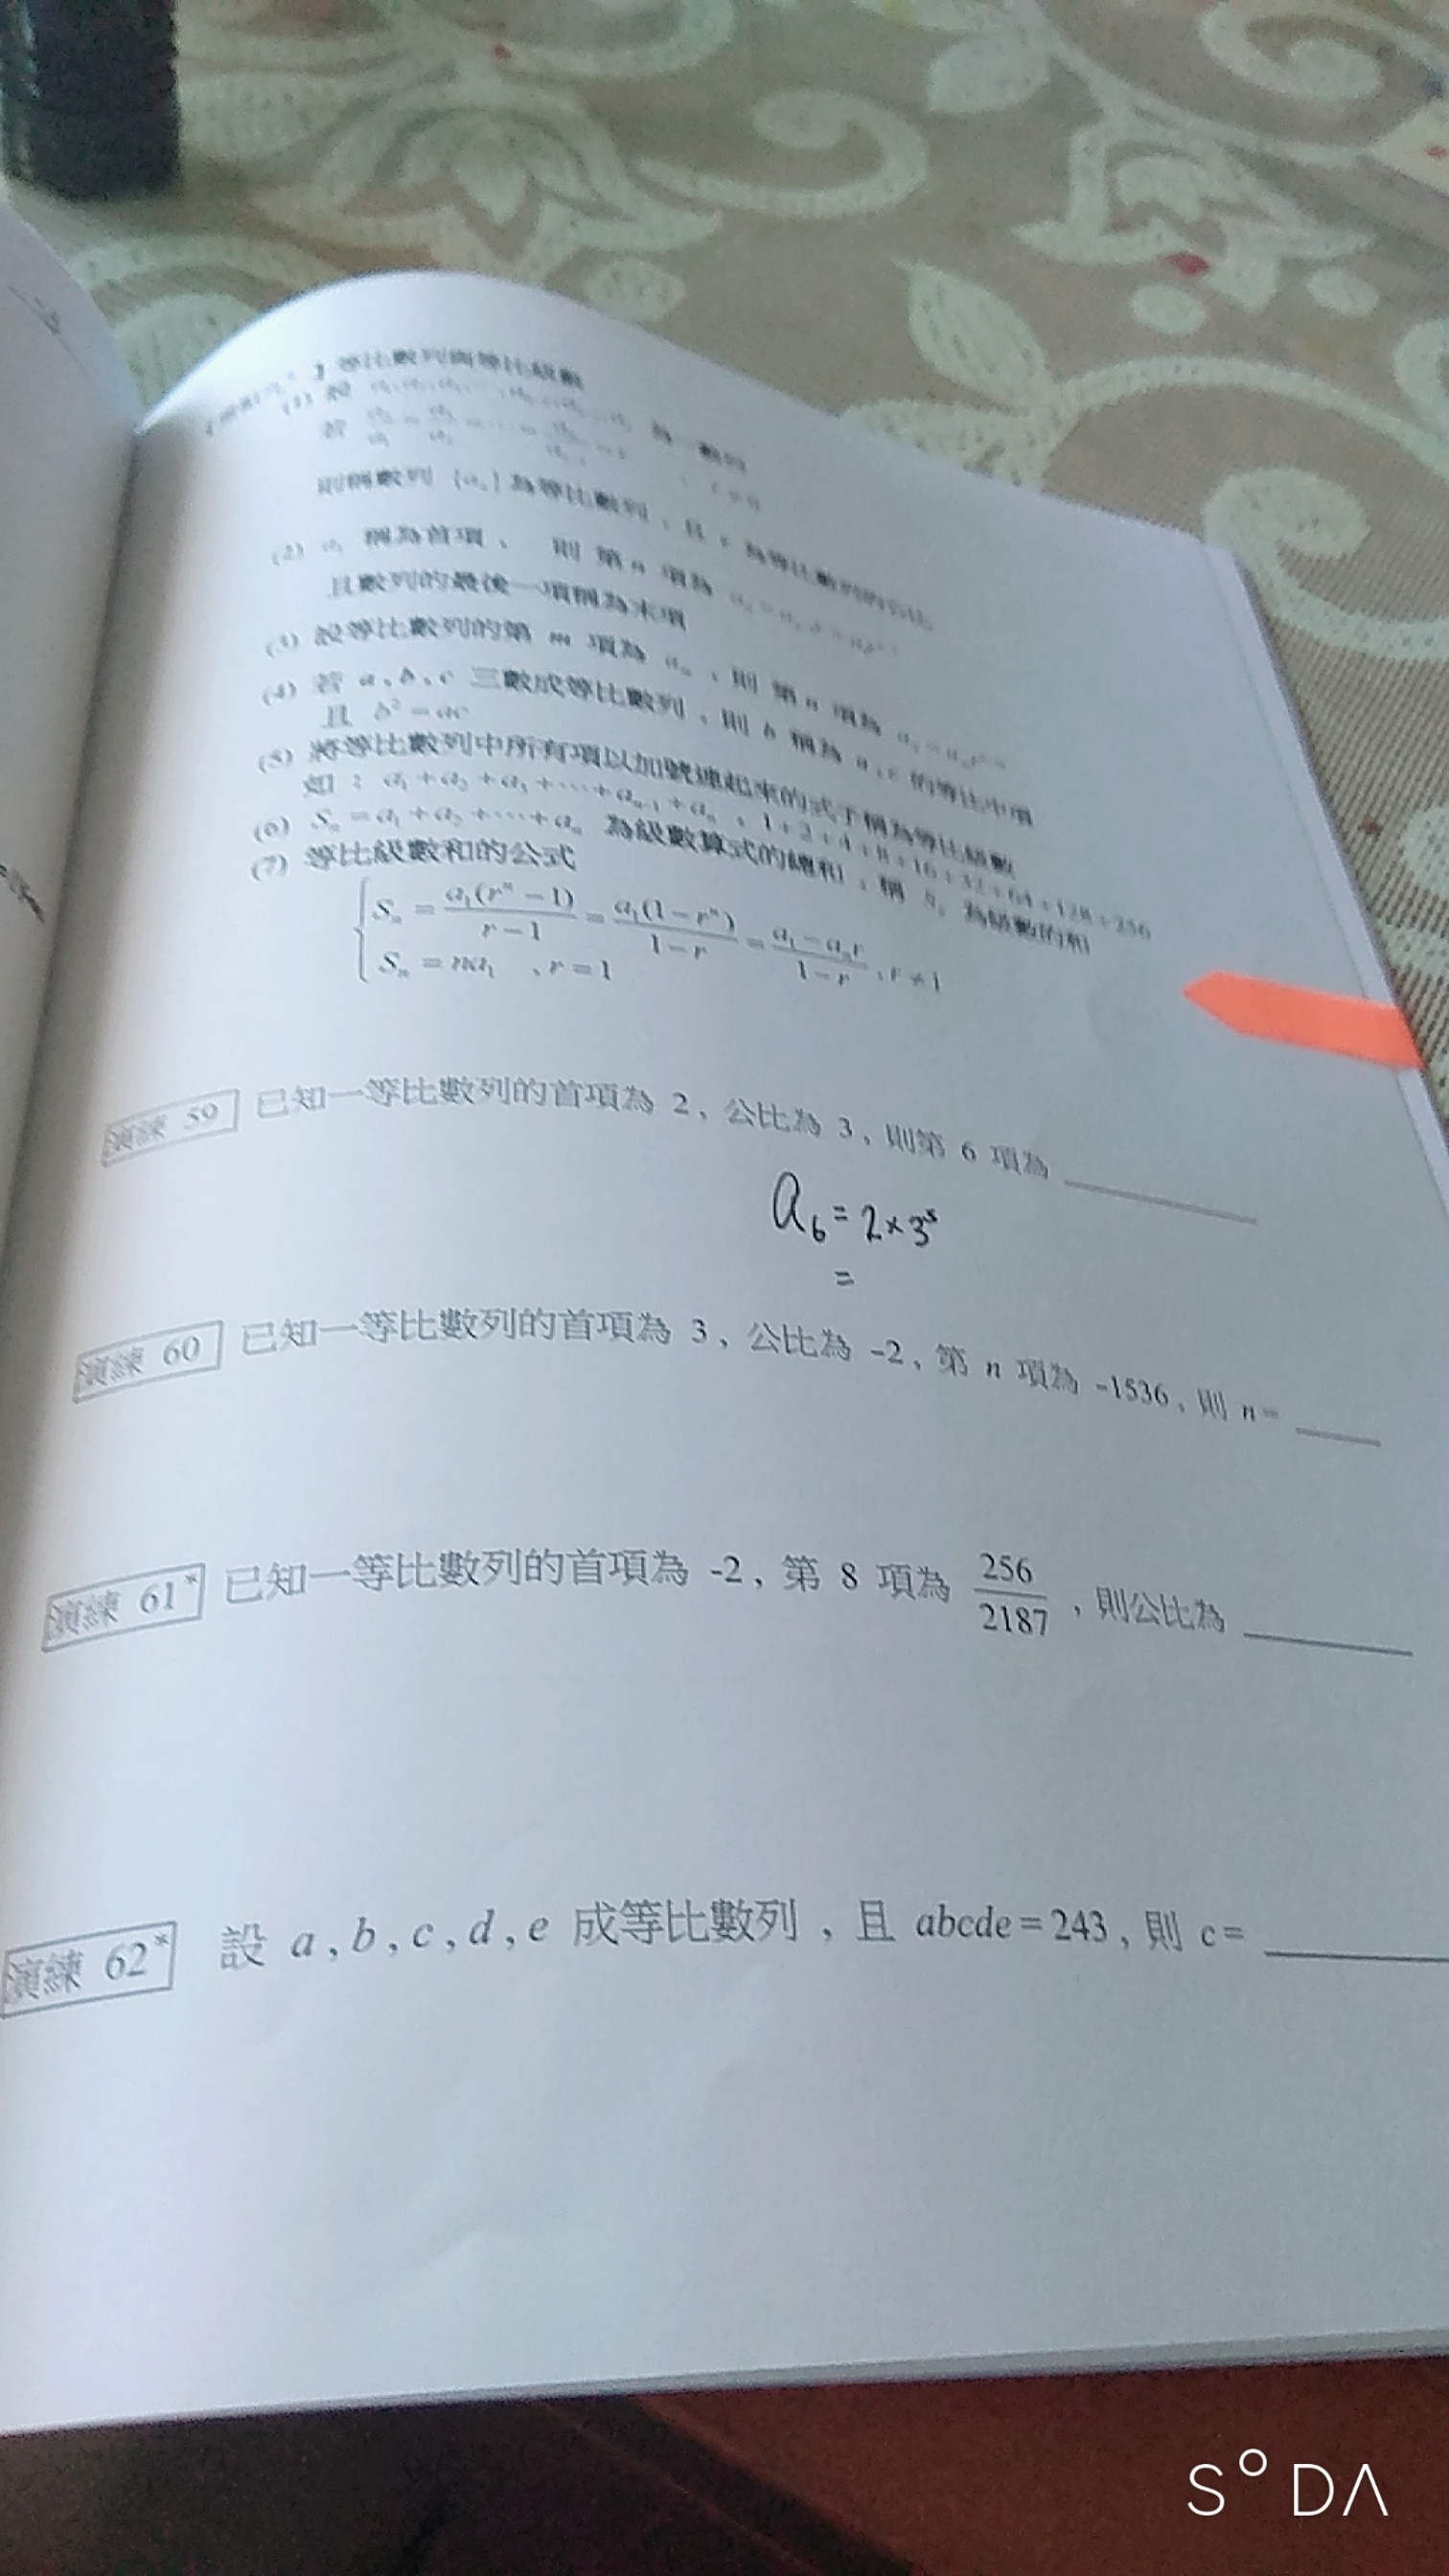 】等比數列與等比級數
為一數列
則稱數列 {aₙ} 為等比數列，且 r 為等比數列的公比
(2) a₁ 稱為首項、 則 第 n 項為
且數列的最後一項稱為末項
(3) 設等比數列的第 m 項為 aₘ ，則 第 n 項為
(4) 若 a、b、c 三數成等比數列，則 b 稱為 a、c 的等比中項
且 b² = ac
(5) 將等比數列中所有項以加號連起來的式子稱為等比級數
如：a₁ + a₂ + a₃ + ⋯⋯ + aₙ₋₁ + aₙ、1 + 2 + 4 + 8 + 16 + 32 + 64 + 128 + 256
(6) Sₙ = a₁ + a₂ + ⋯⋯ + aₙ 為級數算式的總和，稱 Sₙ 為級數的和
(7) 等比級數和的公式
Sₙ = a₁(rⁿ − 1)/(r − 1) = a₁(1 − rⁿ)/(1 − r) = (a₁ − aₙr)/(1 − r)、r ≠ 1
Sₙ = na₁ 、r = 1
演練 59 已知一等比數列的首項為 2，公比為 3，則第 6 項為
a₆ = 2×3⁵
=
演練 60 已知一等比數列的首項為 3，公比為 -2，第 n 項為 -1536，則 n =
演練 61* 已知一等比數列的首項為 -2，第 8 項為 256/2187，則公比為
演練 62* 設 a , b , c , d , e 成等比數列，且 abcde = 243，則 c =
S°DΛ